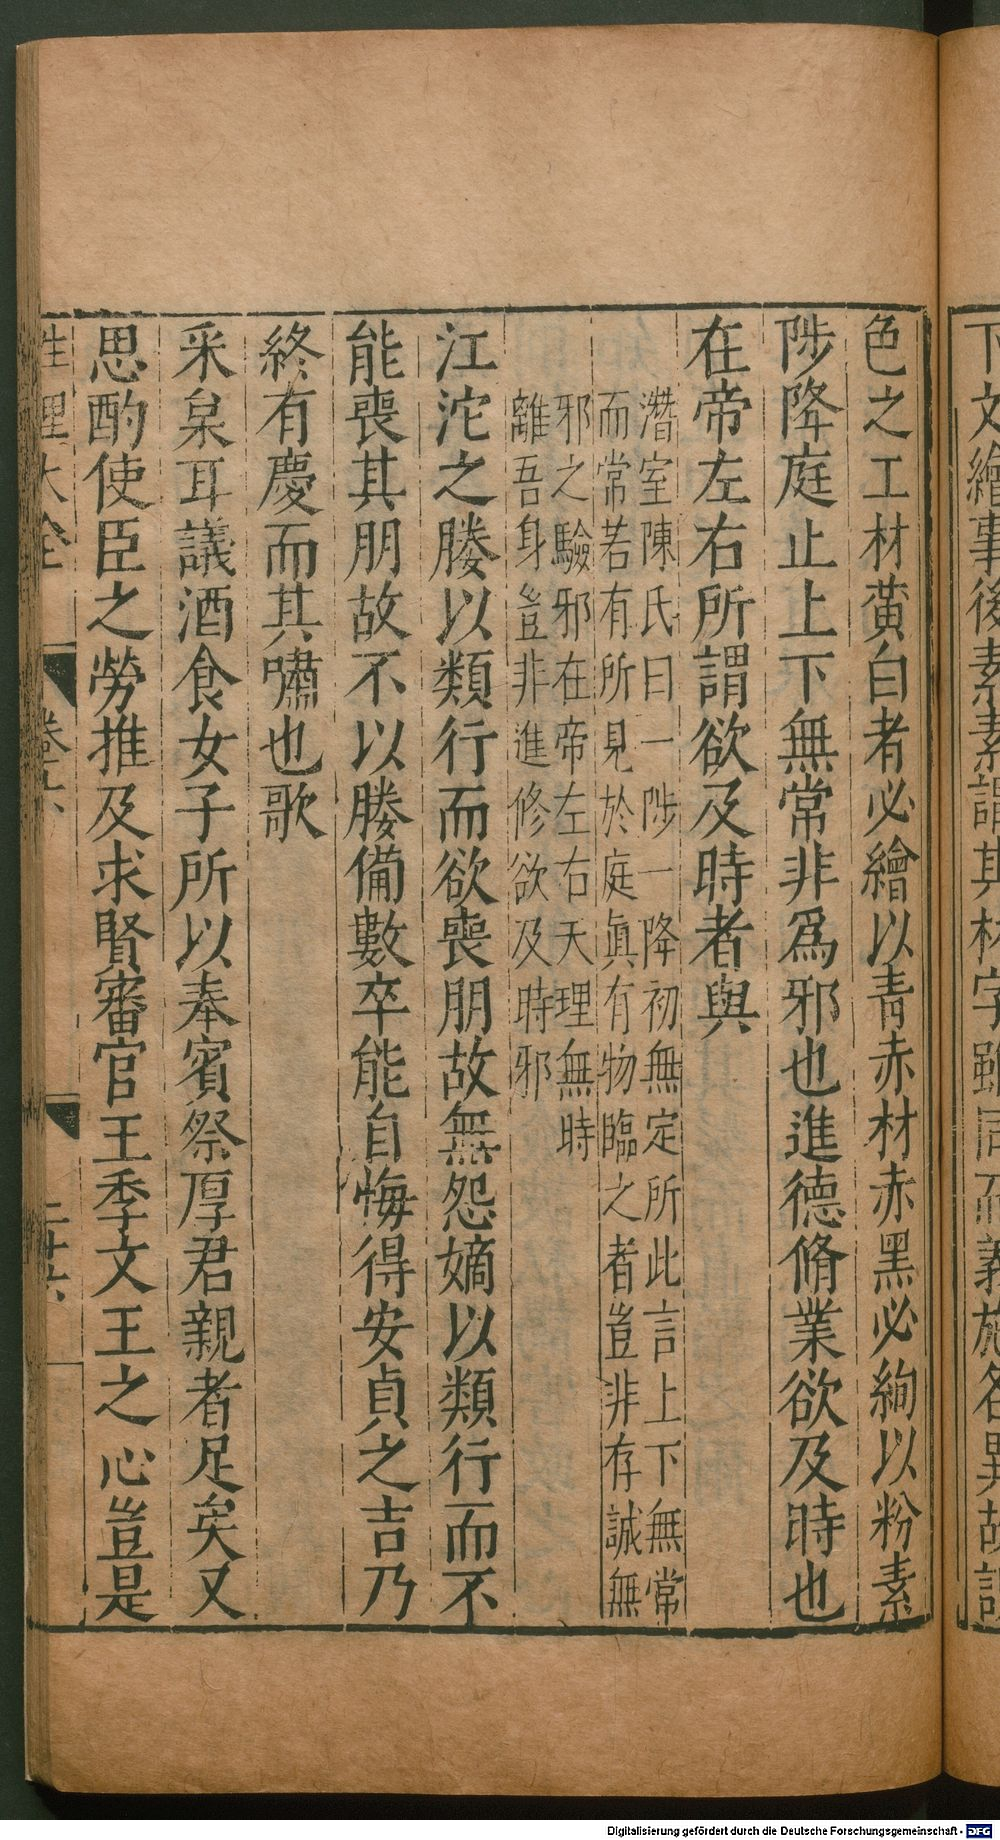 下文繪事後素素謂其材字雖同而義施各異故謂
色之工材黃白者必繪以青赤材赤黑必絢以粉素
陟降庭止上下無常非爲邪也進德脩業欲及時也
在帝左右所謂欲及時者與
潛室陳氏曰一陟一降初無定所此言上下無常
而常若有所見於庭眞有物臨之者豈非存誠無
邪之驗邪在帝左右天理無時
離吾身豈非進修欲及時邪
江沱之媵以類行而欲喪朋故無怨嫡以類行而不
能喪其朋故不以媵備數卒能自悔得安貞之吉乃
終有慶而其嘯也歌
采枲耳議酒食女子所以奉賓祭厚君親者足矣又
思酌使臣之勞推及求賢審官王季文王之心豈是
性理大全 卷六 二十六
Digitalisierung gefördert durch die Deutsche Forschungsgemeinschaft - DFG